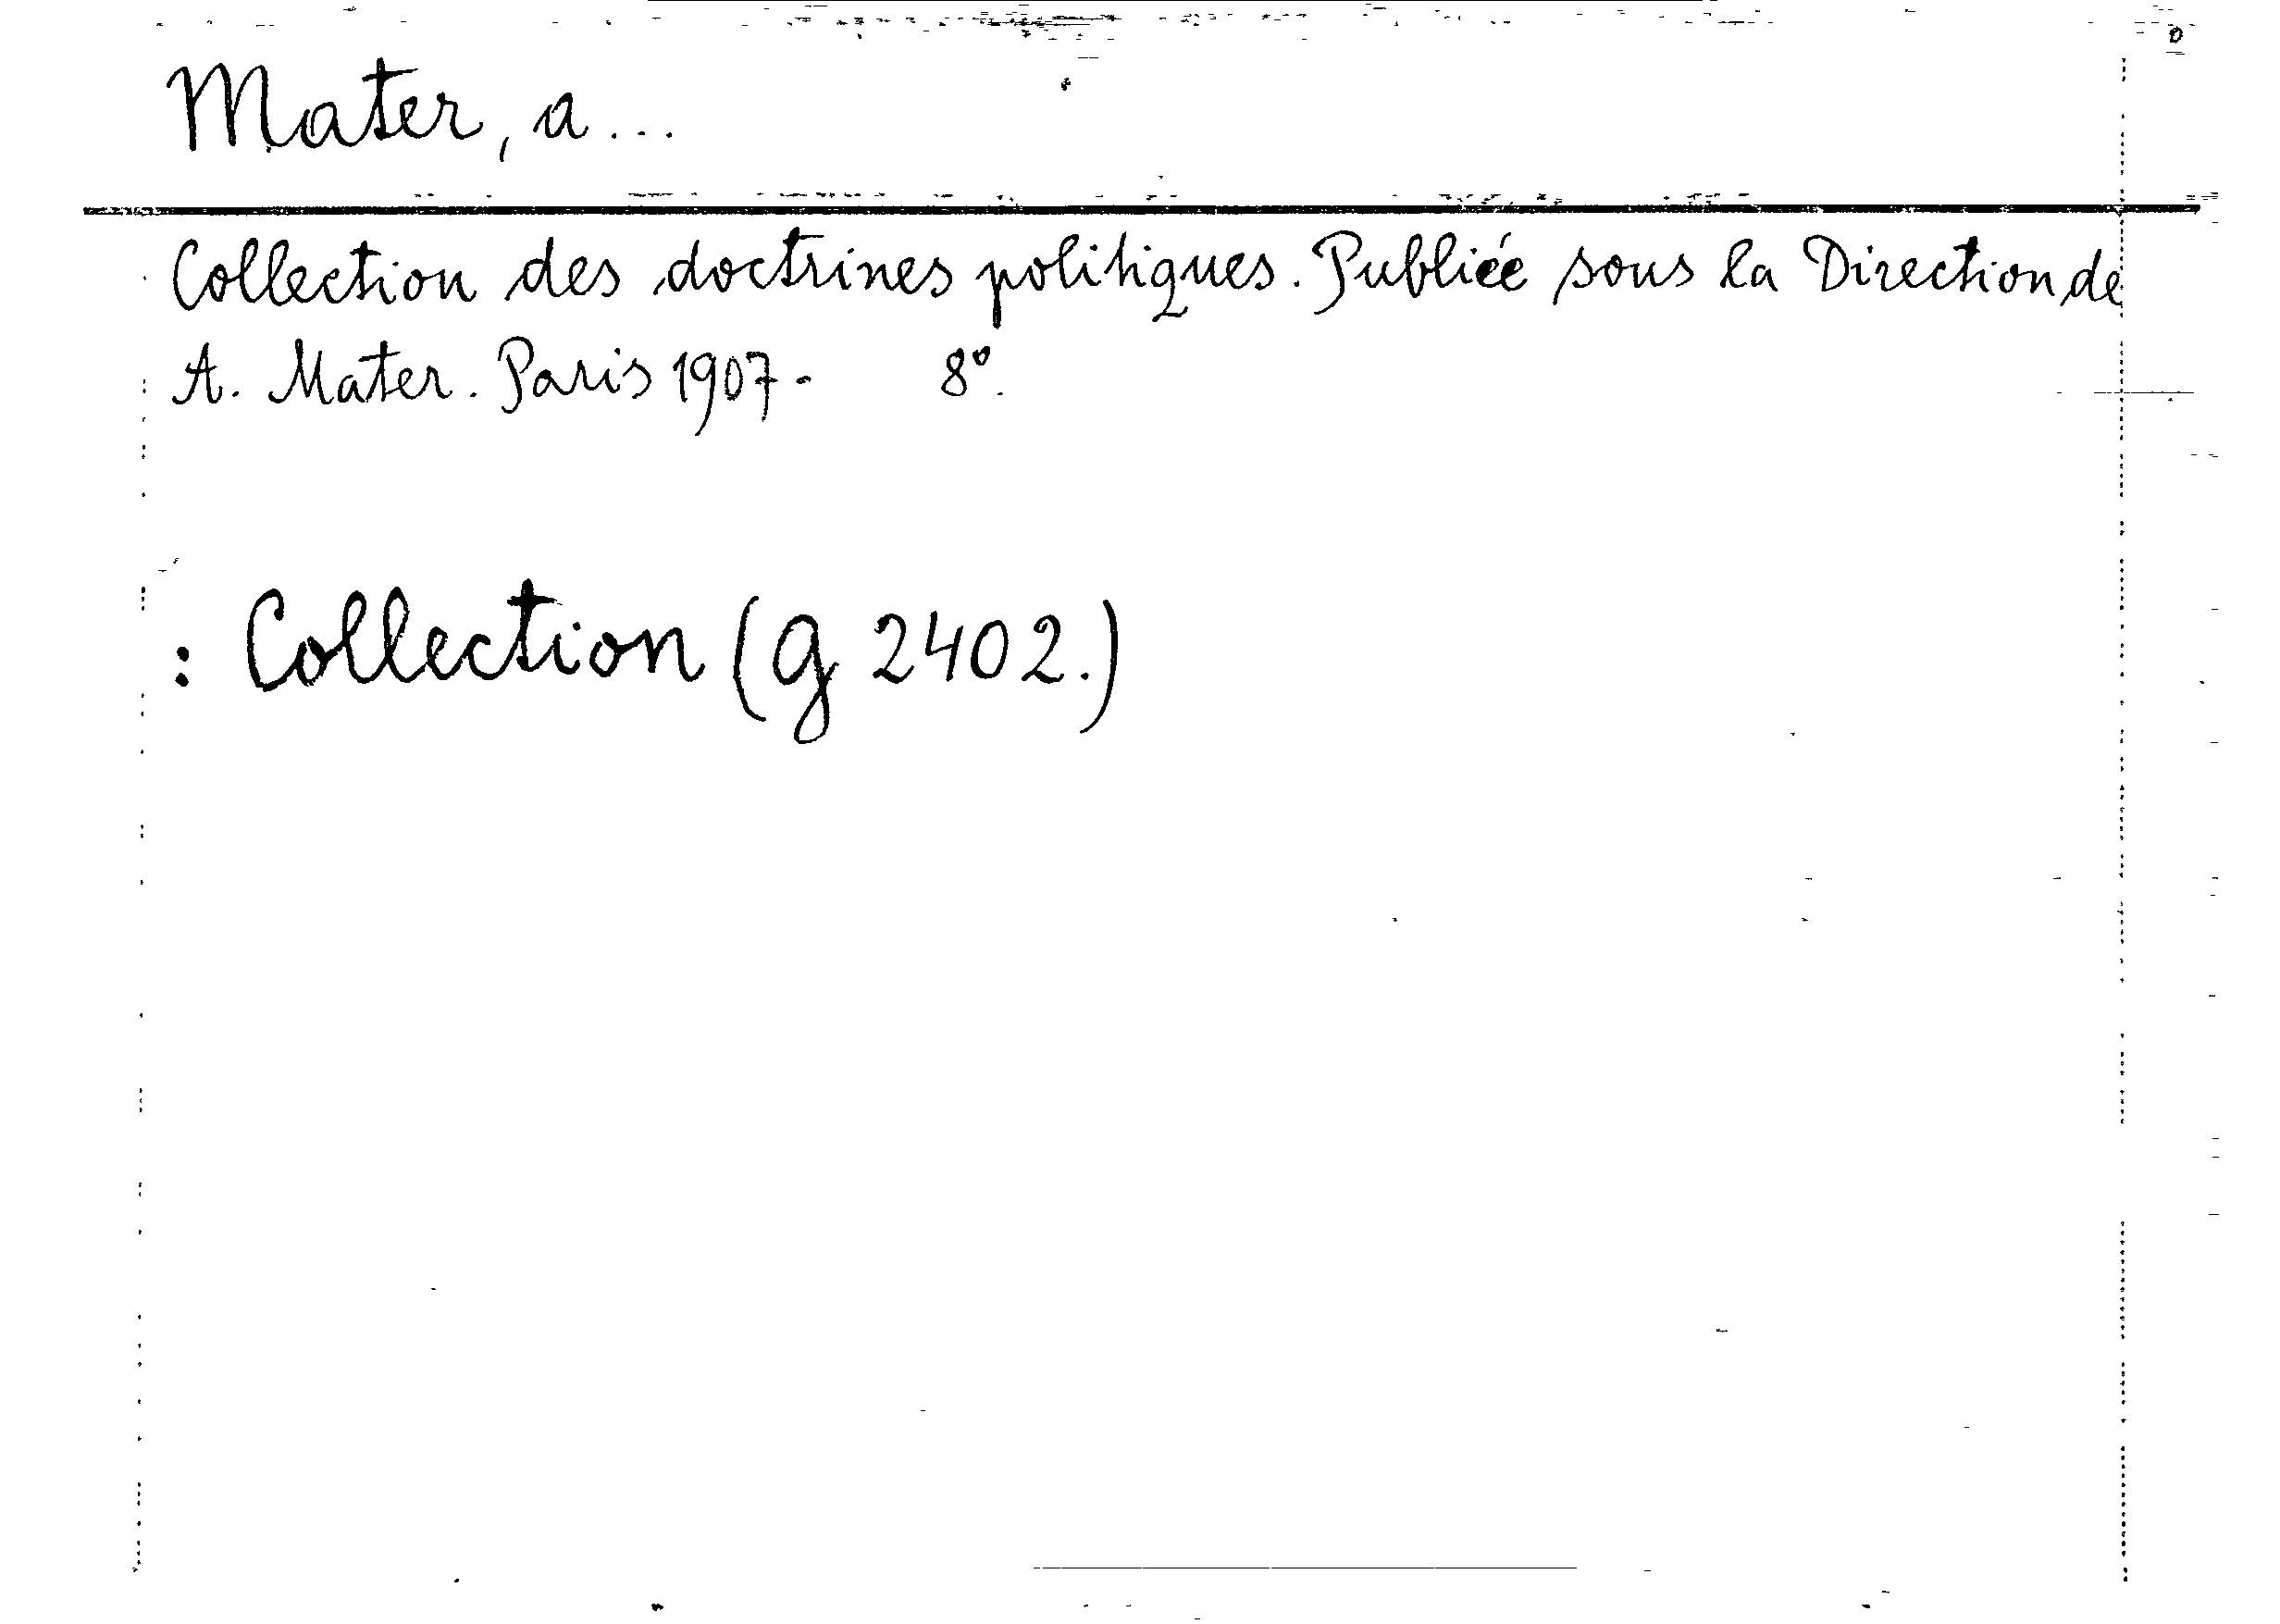 Mater, a...
Collection des doctrines politiques. Publiée sous la Direction de
A. Mater. Paris 1907- 8°.
: Collection (g 2402.)